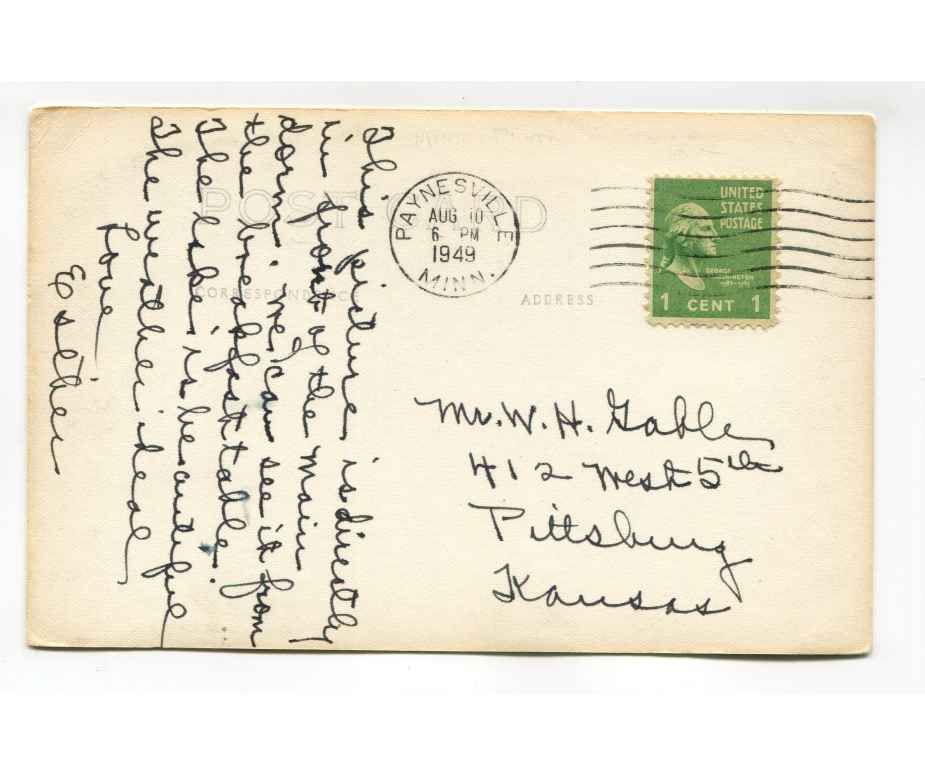 POST CARD
CORRESPONDENCE
ADDRESS
This picture is directly
in front of the main
dorm. We can see it from
the breakfast table.
The lake is beautiful
The weather ideal
Love
Esther
PAYNESVILLE
AUG 10
6 PM
1949
MINN.
UNITED
STATES
POSTAGE
GEORGE
WASHINGTON
1 CENT 1
Mr. W. H. Gable
412 West 5th
Pittsburg
Kansas